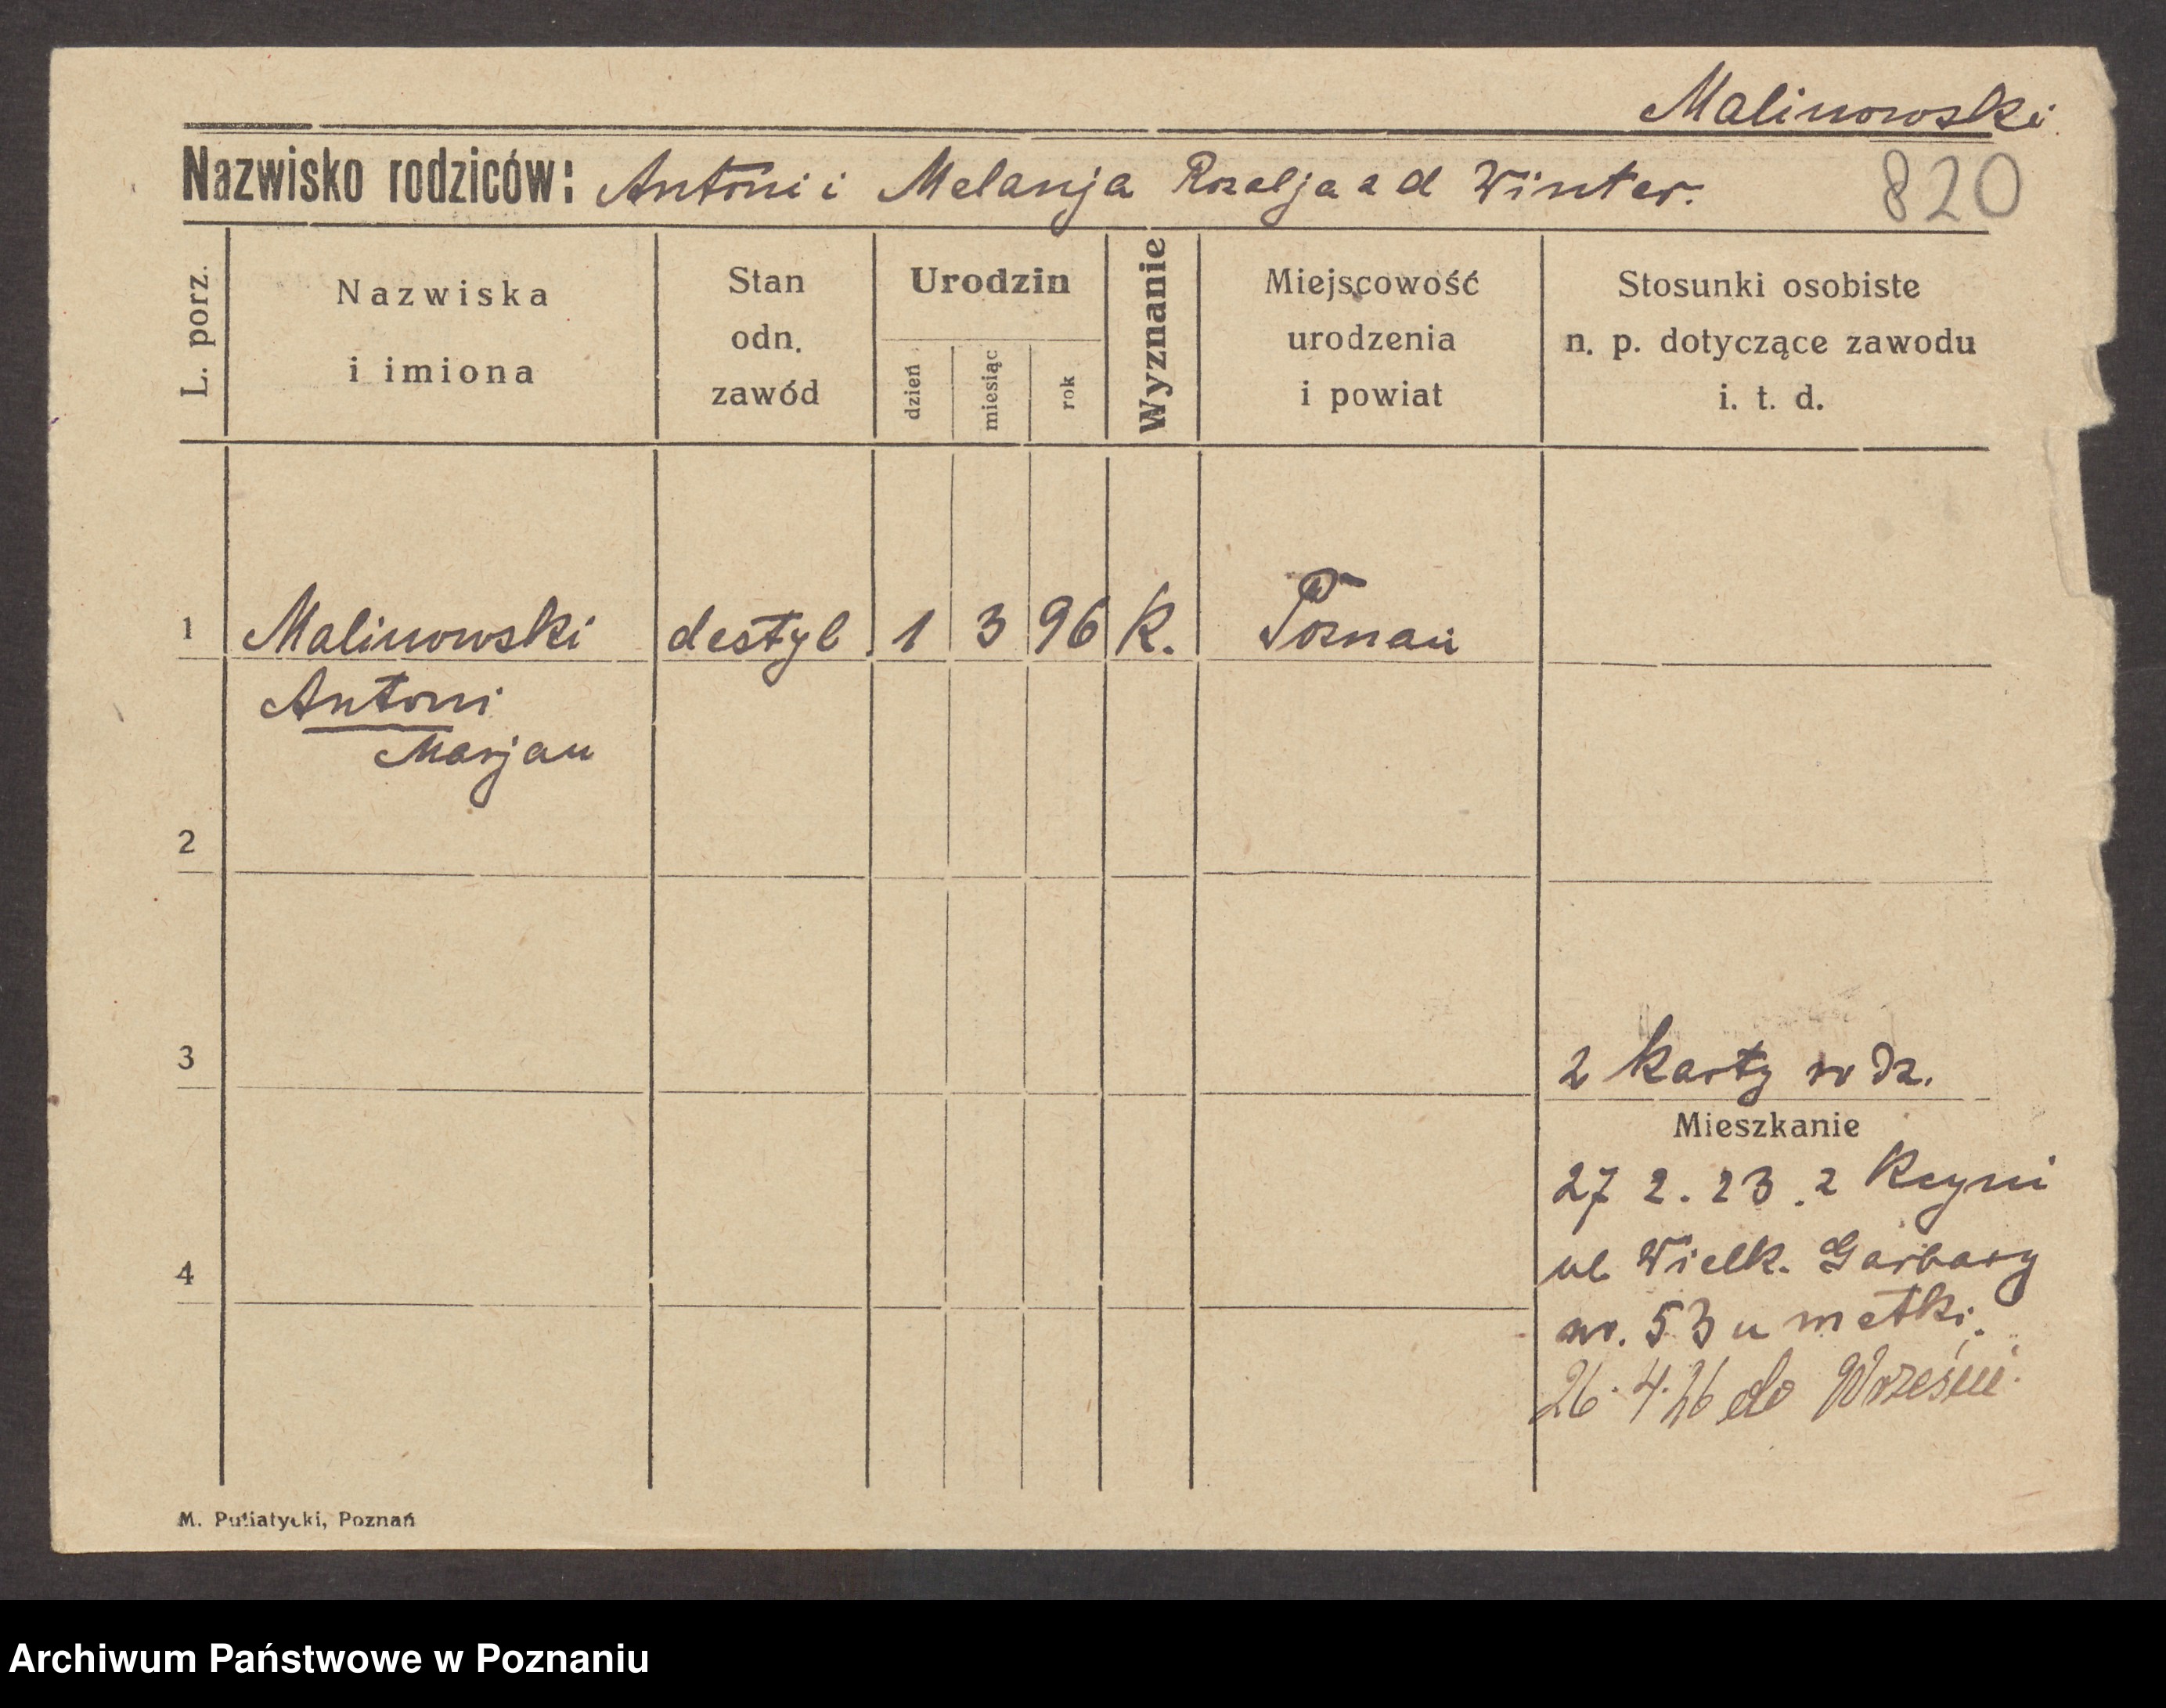 Malinowski
Nazwisko rodziców: Antoni i Melanja Rozalja z d Winter.
820
L. porz.
Nazwiska
i imiona
Stan
odn.
zawód
Urodzin
dzień
miesiąc
rok
Wyznanie
Miejscowość
urodzenia
i powiat
Stosunki osobiste
n. p. dotyczące zawodu
i. t. d.
1 Malinowski destyl. 1 3 96 K. Poznań
Antoni
Marjan
2
3
2 karty rodz.
Mieszkanie
27 2. 23. z Kcyni
4
ul Wielk. Garbary
nr. 53 u matki.
26. 4. 26 do Wrześni.
M. Putiatycki, Poznań
Archiwum Państwowe w Poznaniu